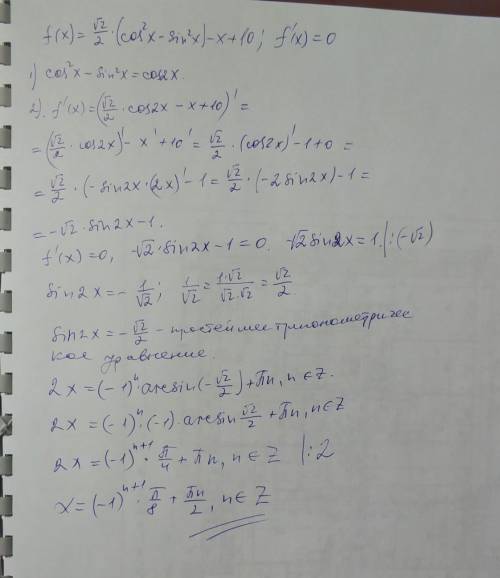 f(x) = √2/2 · (cos²x - sin²x) - x + 10; f'(x) = 0
1) cos²x - sin²x = cos2x.
2). f'(x) = (√2/2 · cos2x - x + 10)' =
= (√2/2 · cos2x)' - x' + 10' = √2/2 · (cos2x)' - 1 + 0 =
= √2/2 · (-sin2x · (2x)' - 1 = √2/2 · (-2sin2x) - 1 =
= -√2 · sin2x - 1.
f'(x) = 0, -√2 · sin2x - 1 = 0. -√2 sin2x = 1. |:(-√2)
sin2x = - 1/√2; 1/√2 = 1·√2/√2·√2 = √2/2.
sin2x = -√2/2 - простейшее тригонометричес
кое уравнение.
2x = (-1)ⁿ arcsin(-√2/2) + πn, n ∈ Z.
2x = (-1)ⁿ · (-1) · arcsin √2/2 + πn, n ∈ Z
2x = (-1)ⁿ⁺¹ · π/4 + πn, n ∈ Z |:2
x = (-1)ⁿ⁺¹ · π/8 + πn/2, n ∈ Z